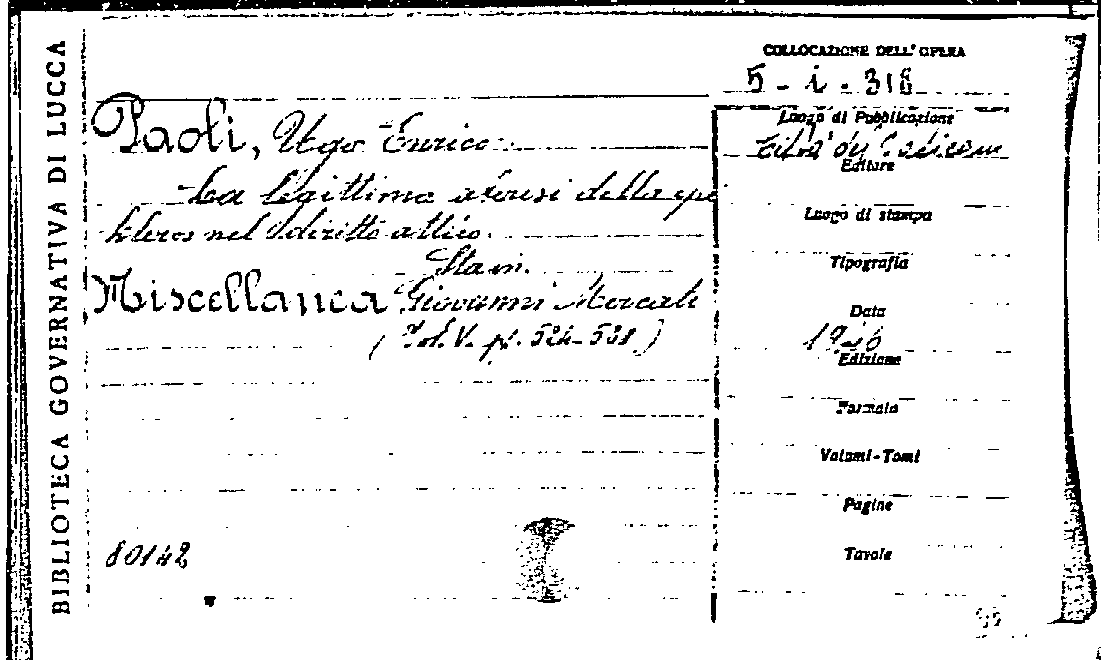 BIBLIOTECA GOVERNATIVA DI LUCCA
COLLOCAZIONE DELL' OPERA
5 - i - 316
Paoli, Ugo Enrico
La legittima aferesi della epi
kleros nel diritto attico.
Stam.
Miscellanea Giovanni Mercati
(Vol. V. pp. 524-538)
80142
Luogo di Pubblicazione
Città del Vaticano
Editore
Luogo di stampa
Tipografia
Data
1946
Edizione
Formato
Volumi-Tomi
Pagine
Tavole